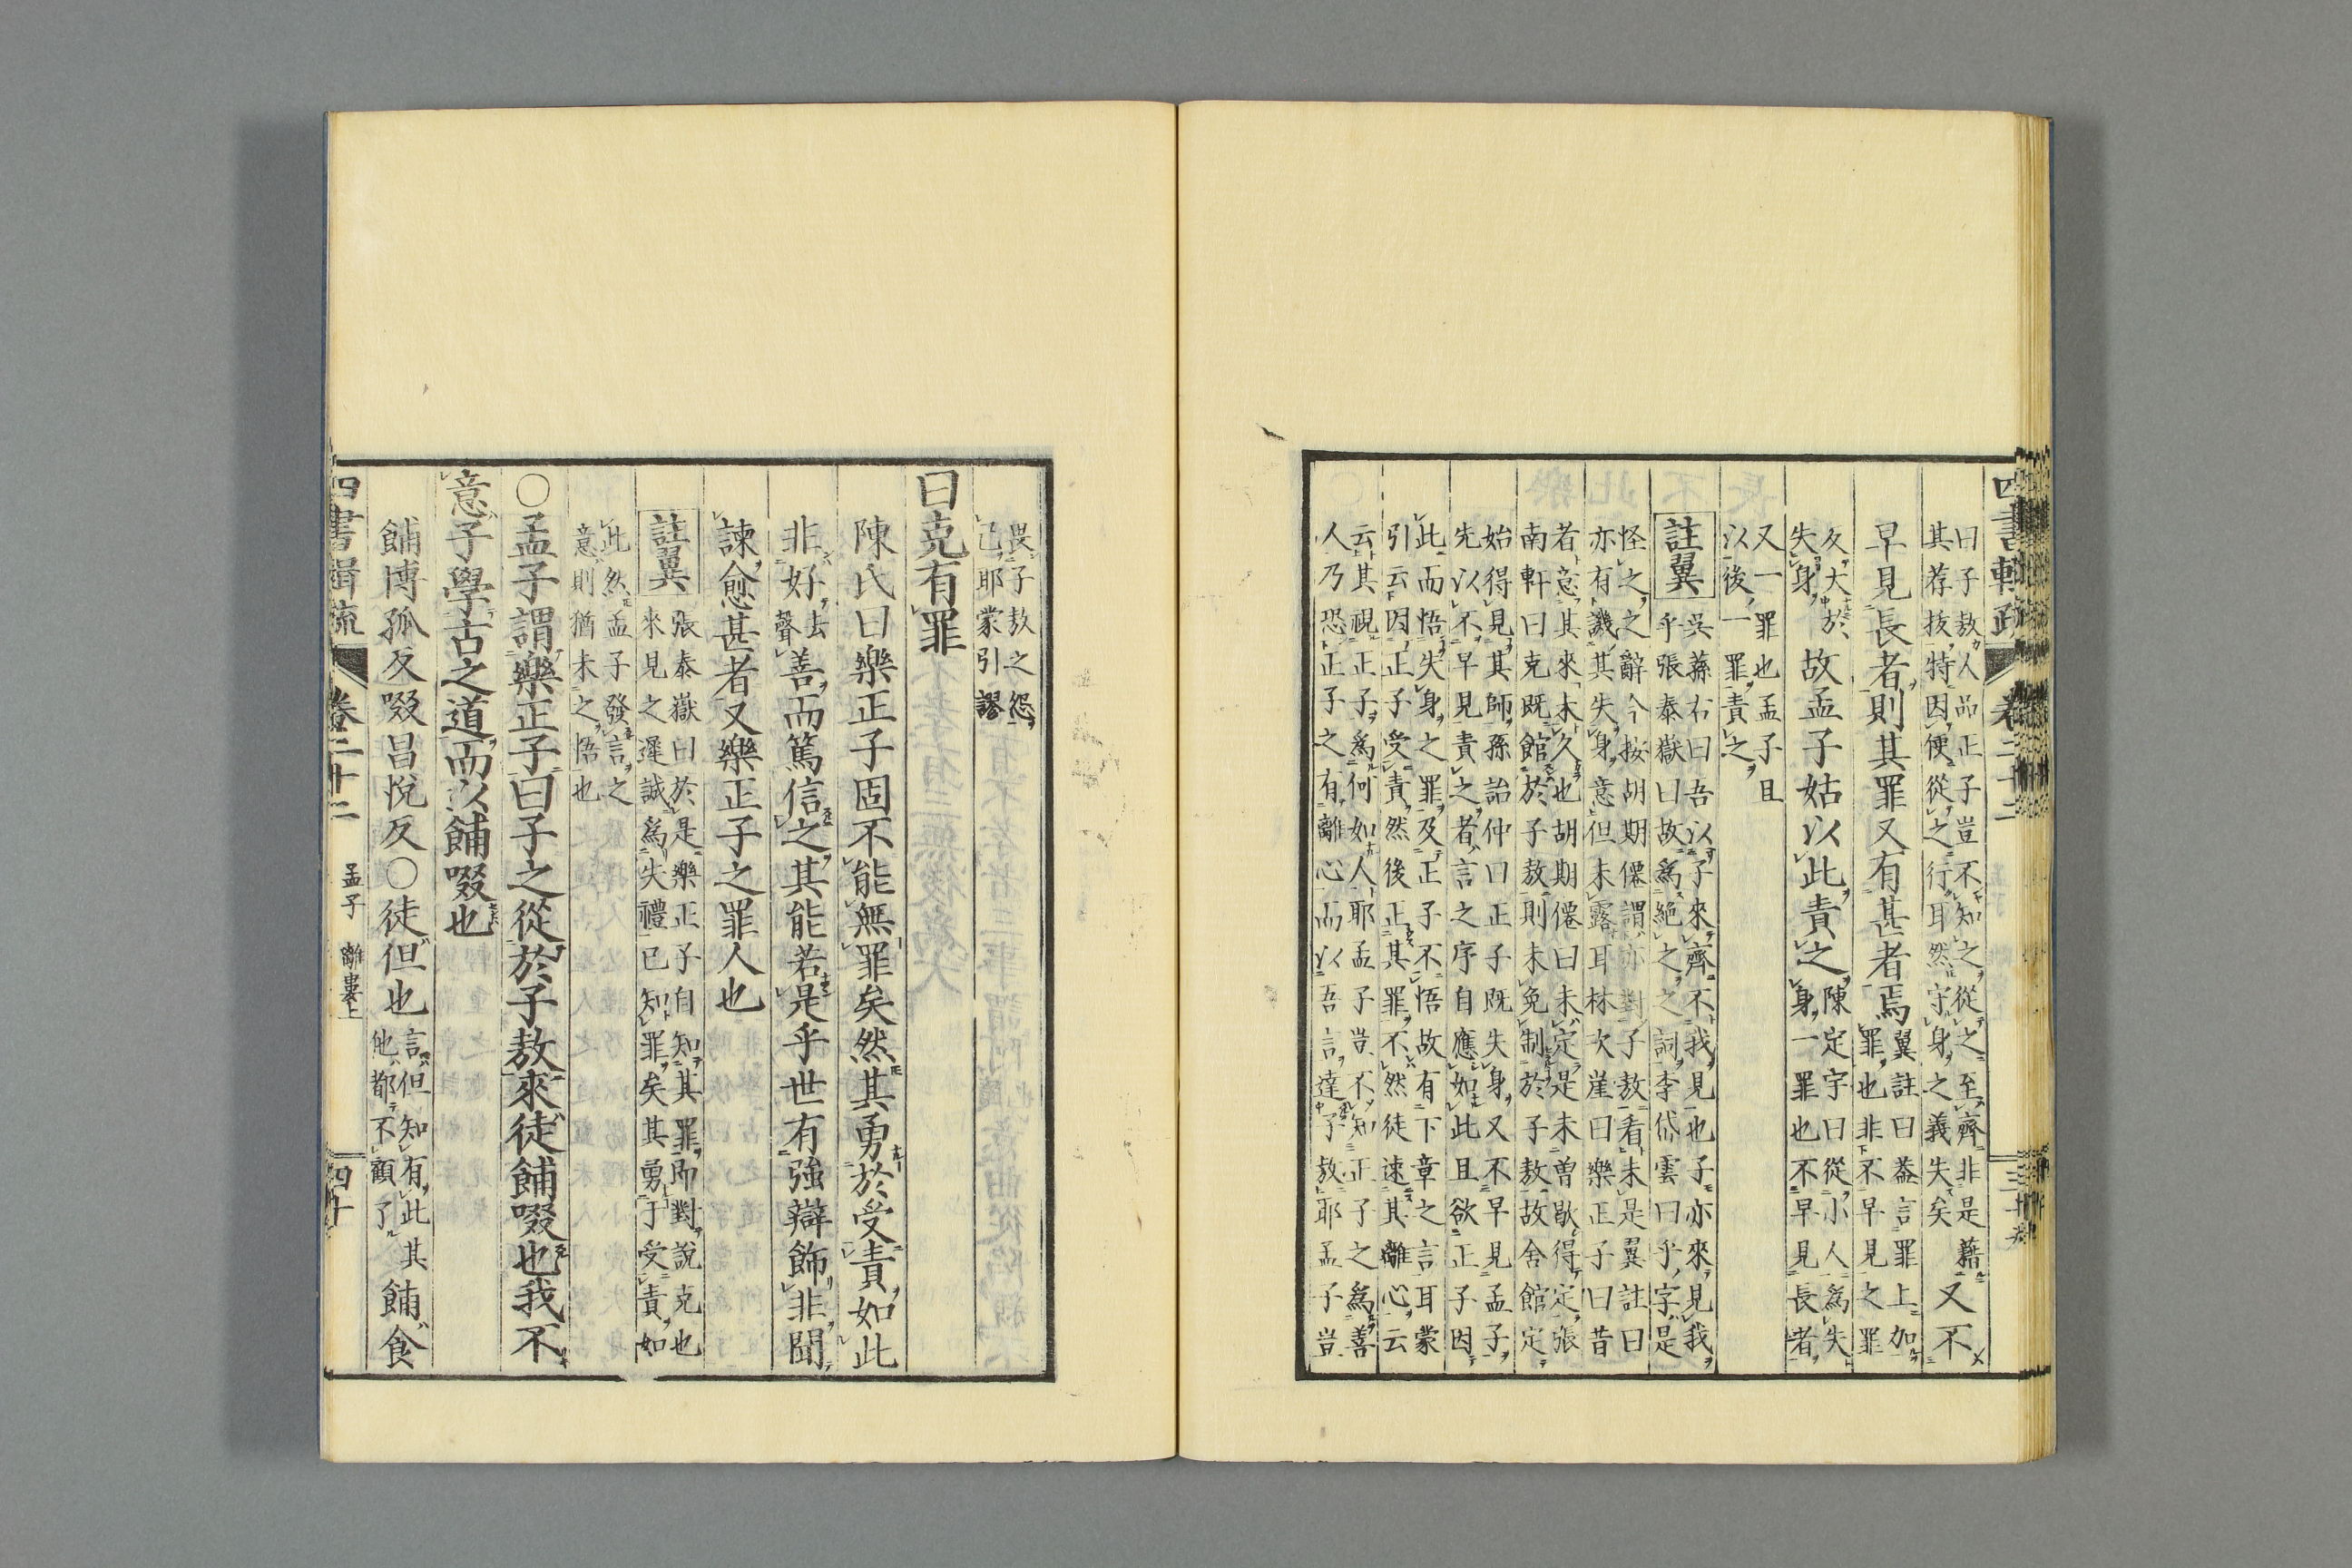 四書輯疏 卷二十二 三十九
曰子敖人品正子豈不知之從之至齊非是藉
其荐拔特因便從之行耳然守身之義失矣
又不
早見長者則其罪又有甚者焉
翼註曰葢言罪上加
罪也非不早見之罪
夊大於
失身
故孟子姑以此責之
陳定宇曰從小人為失
身一罪也不早見長者
又一罪也孟子且
以後一罪責之
註翼
吳蓀右曰吾以子來齊不我見也子亦來見我
乎張泰嶽曰故為絶之之詞李岱雲曰乎字是
怪之之辭今按胡期僊謂亦對子敖看未是翼註曰
亦有譏其失身意但未露耳林次崖曰樂正子曰昔
者意其來未久也胡期僊曰未定是未曾歇得定張
南軒曰克既館於子敖則未免制於子敖故舍館定
始得見其師孫詒仲曰正子既失身又不早見孟子
先以不早見責之者言之序自應如此且欲正子因
此而悟失身之罪及正子不悟故有下章之言耳蒙
引云因正子受責然後正其罪不然徒速其離心云
云其視正子為何如人耶孟子豈不知正子之為善
人乃恐正子之有離心而以吾言達子敖耶孟子豈
畏子敖之怨
己耶蒙引謬
曰克有罪
陳氏曰樂正子固不能無罪矣然其勇於受責如此
非好去聲善而篤信之其能若是乎世有強辯飾非聞
諫愈甚者又樂正子之罪人也
註翼
張泰嶽曰於是樂正子自知其罪即對說克也
來見之遲誠為失禮已知罪矣其勇于受責如
此然孟子發言之
意則猶未之悟也
○孟子謂樂正子曰子之從於子敖來徒餔啜也我不
意子學古之道而以餔啜也
餔博孤反啜昌悅反○徒但也
言但知有此其
他都不顧了
餔食
四書輯疏 卷二十二 孟子 離婁上 四十